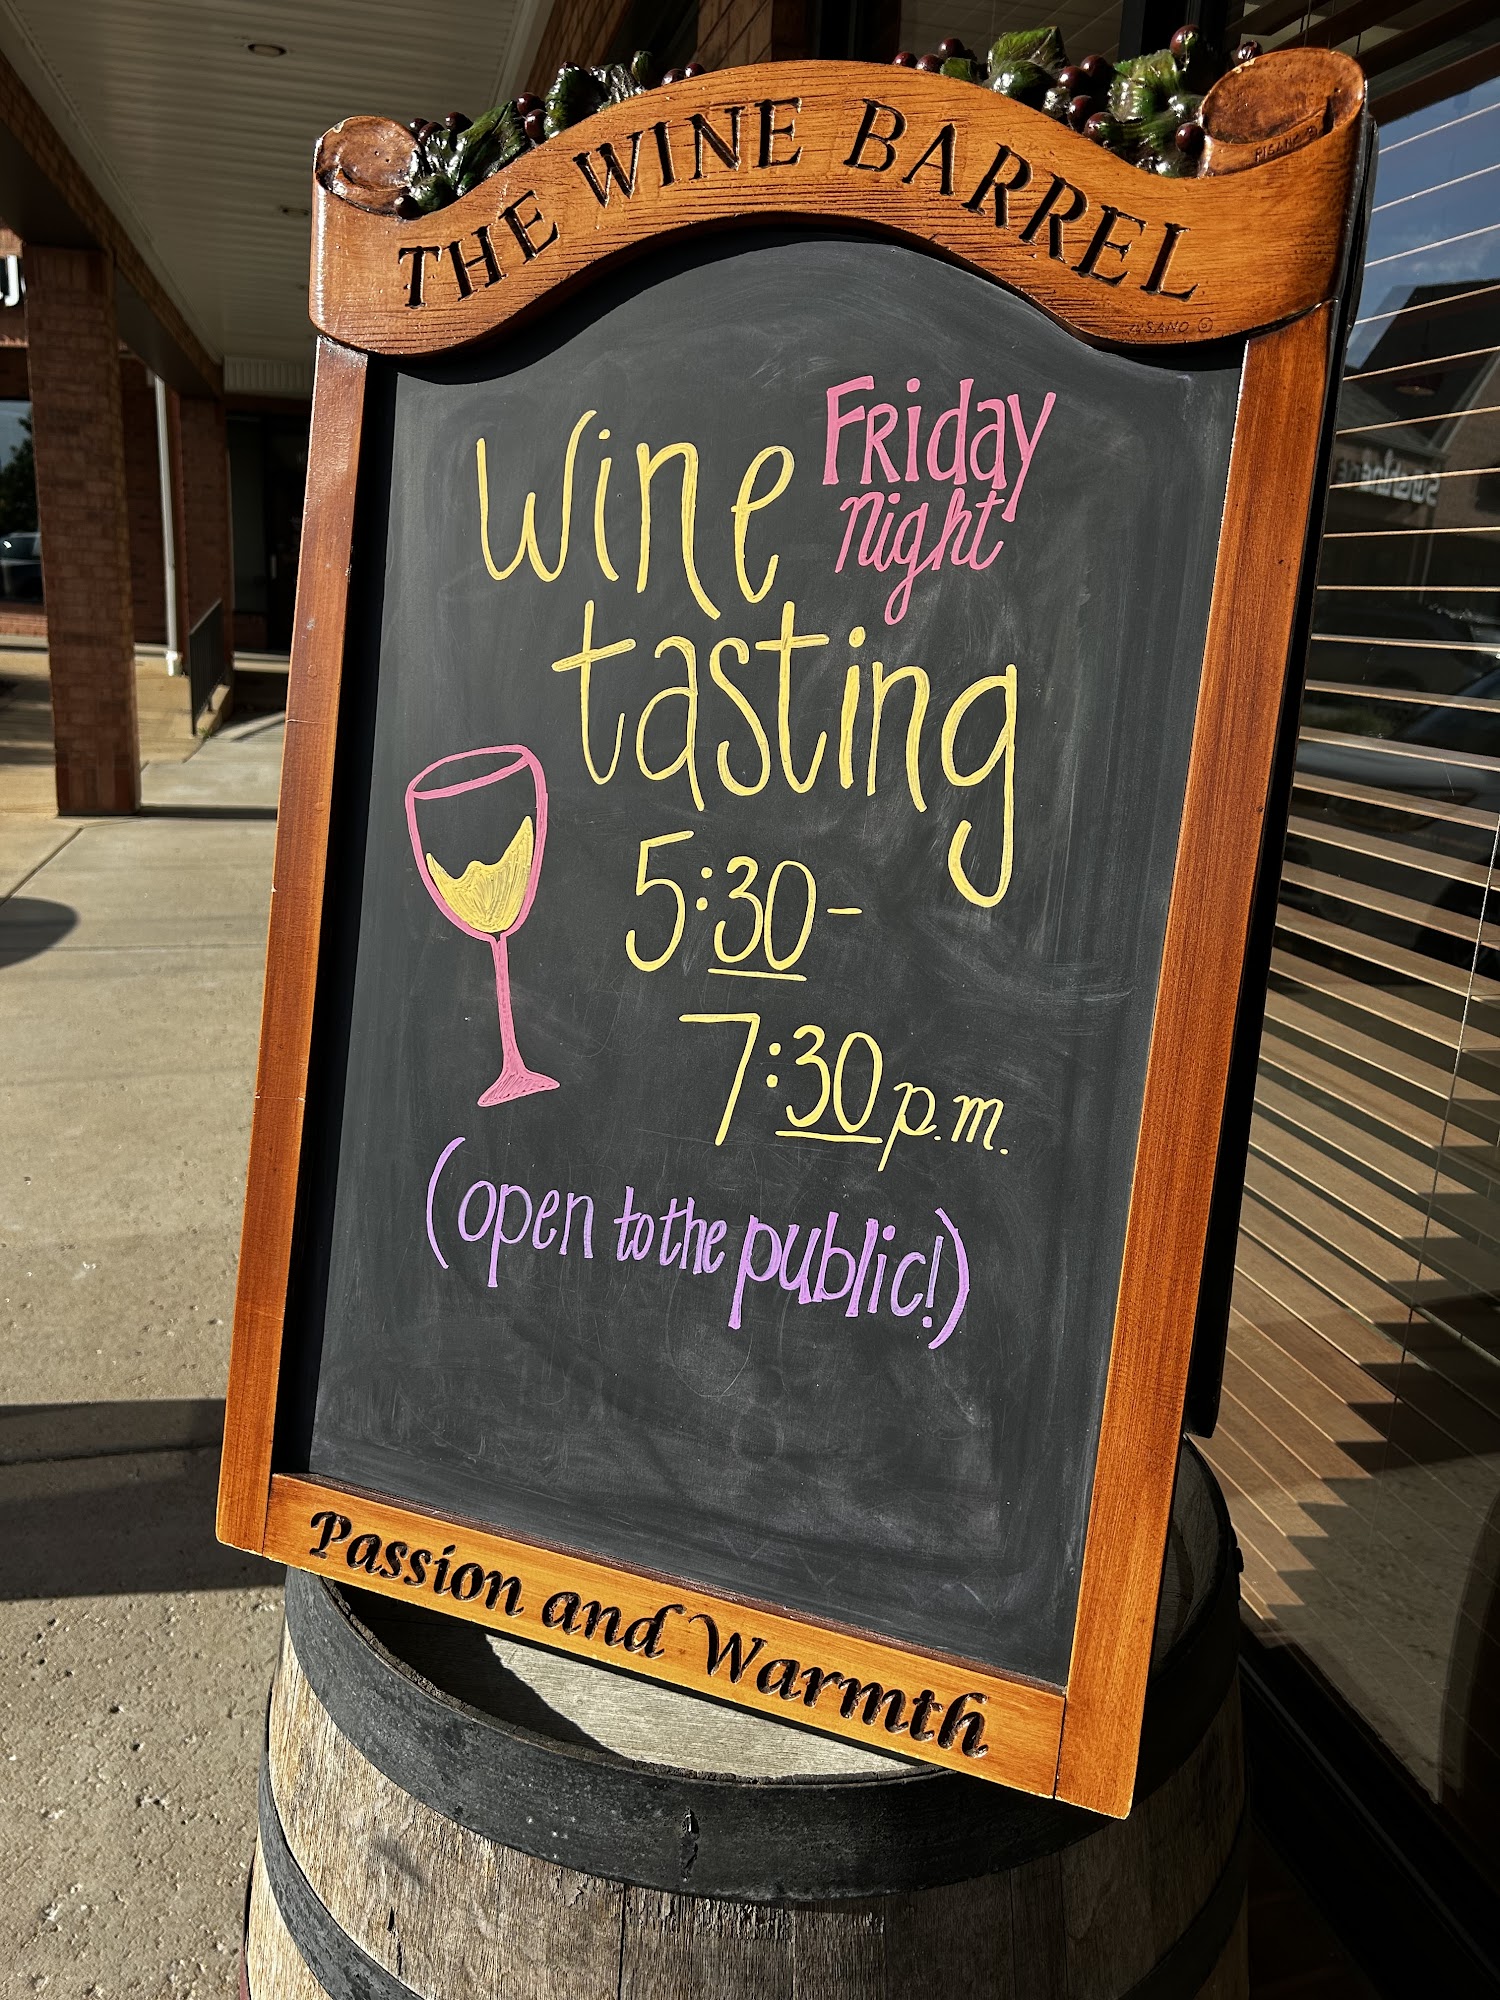 THE WINE BARREL
PISANO ©
Wine
Friday
Night
tasting
5:30-
7:30 p.m.
(open to the public!)
Passion and Warmth